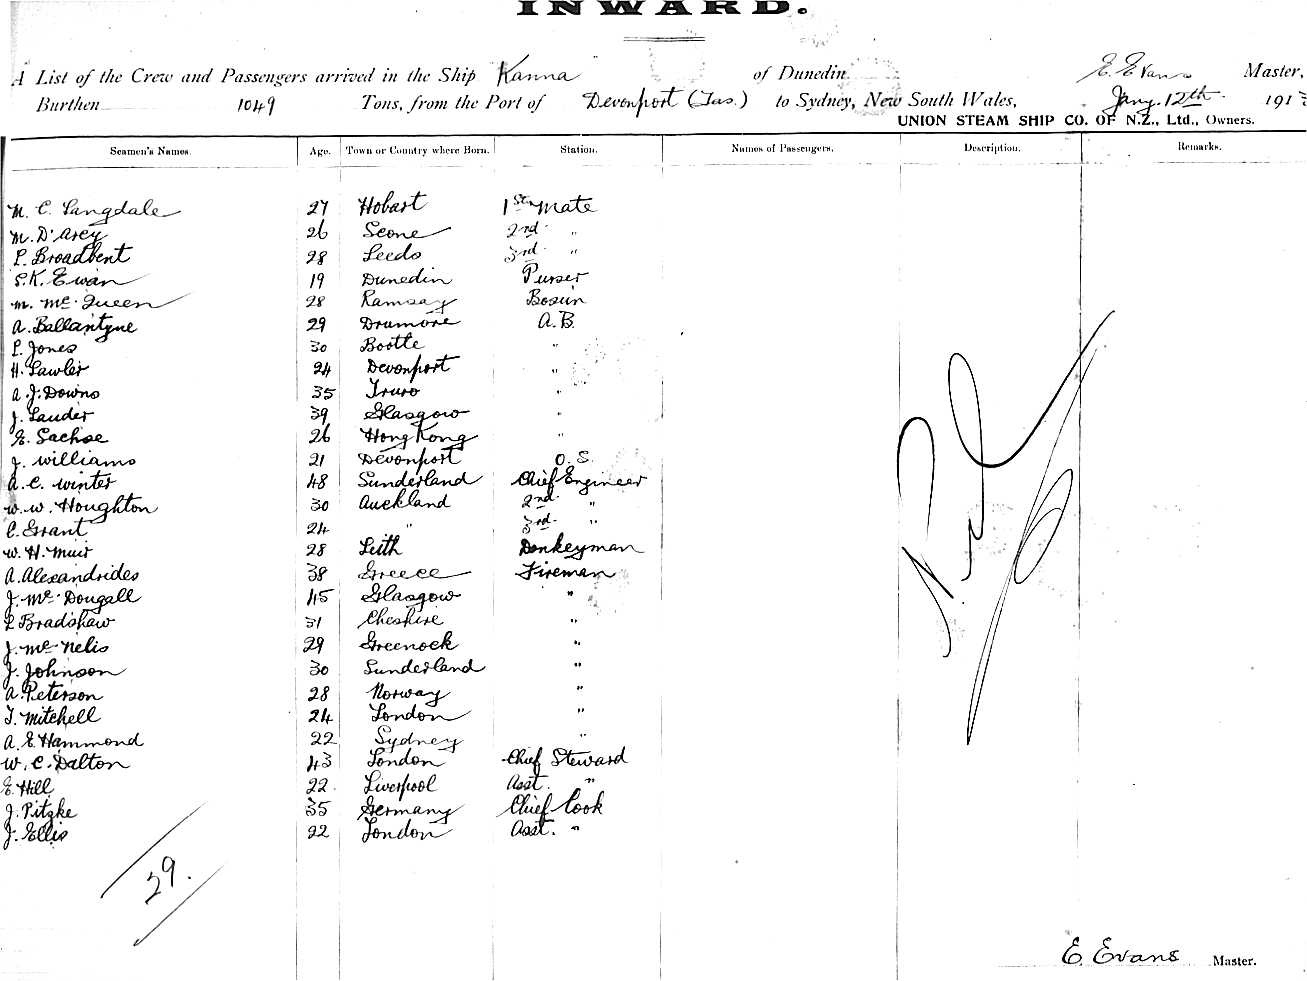 INWARD.
A List of the Crew and Passengers arrived in the Ship Kanna of Dunedin E. Evans Master,
Burthen 1049 Tons, from the Port of Devonport (Tas.) to Sydney, New South Wales, Jany. 12th 191
UNION STEAM SHIP CO. OF N.Z., Ltd., Owners.
Seamen's Names. Age. Town or Country where Born. Station. Names of Passengers. Description. Remarks.
M. C. Langdale 27 Hobart 1st Mate
M. D'Arcy 26 Scone 2nd "
P. Broadbent 28 Leeds 3rd "
S.K. Ewan 19 Dunedin Purser
M. Mc Queen 28 Ramsay Bosun
A. Ballantyne 29 Drumore A.B.
P. Jones 30 Bootle "
H. Lawler 24 Devonport "
A. J. Downs 35 Truro "
J. Lauder 39 Glasgow "
E. Sachse 26 Hong Kong "
J. Williams 21 Devonport O.S.
A. C. Winter 48 Sunderland Chief Engineer
W. W. Houghton 30 Auckland 2nd "
C. Grant 24 " 3rd "
W. H. Muir 28 Leith Donkeyman
A. Alexandrides 38 Greece Fireman
J. Mc Dougall 45 Glasgow "
P Bradshaw 31 Cheshire "
J. Mc Nelis 29 Greenock "
J. Johnson 30 Sunderland "
A. Peterson 28 Norway "
T. Mitchell 24 London "
A. E. Hammond 22 Sydney "
W. C. Dalton 43 London Chief Steward
E. Hill 22 Liverpool Asst. "
J. Pitzke 35 Germany Chief Cook
J. Ellis 22 London Asst. "
29.
E. Evans Master.